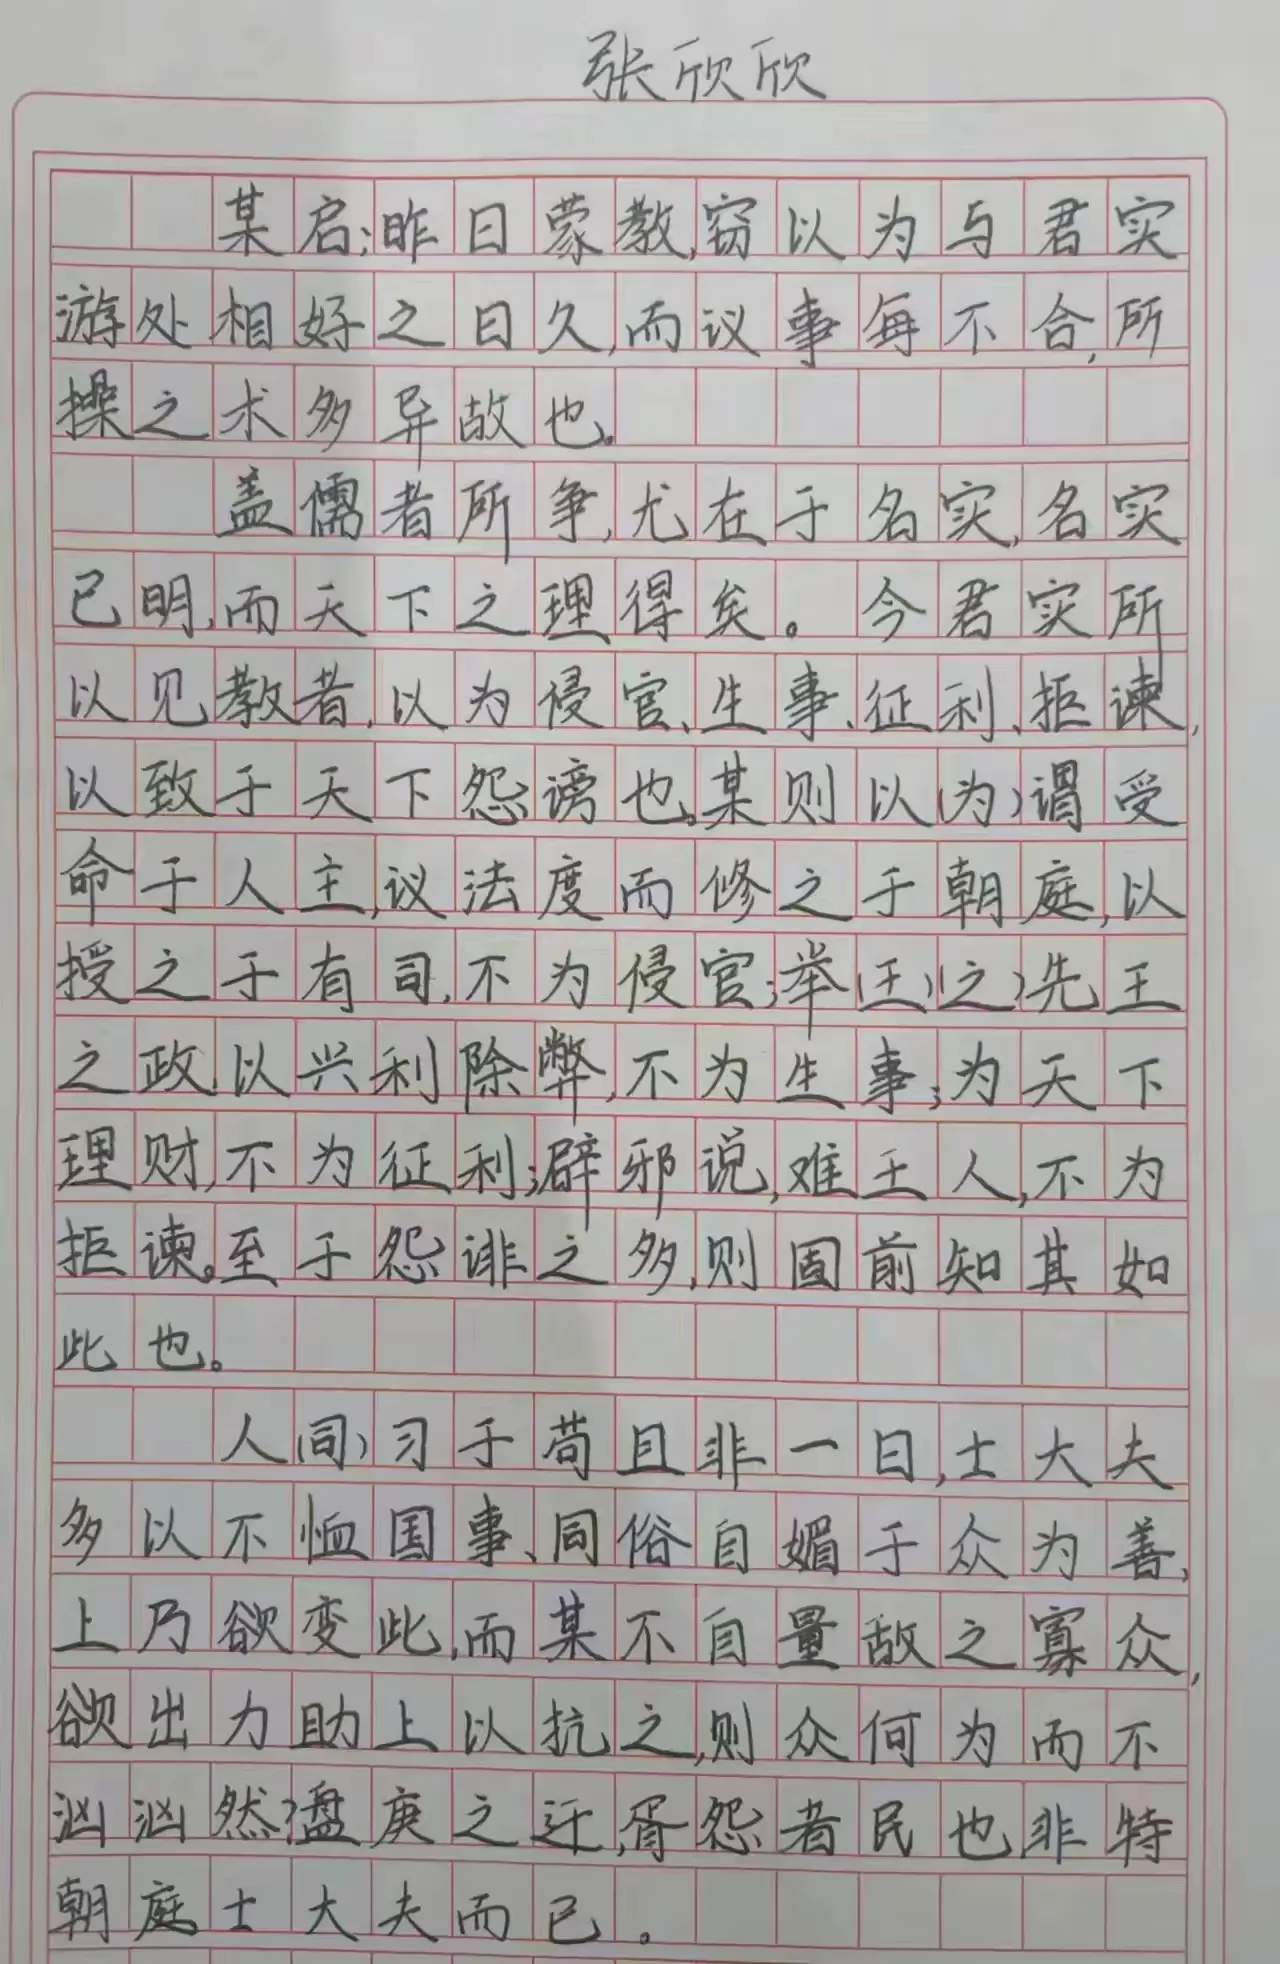 张欣欣
某启:昨日蒙教,窃以为与君实
游处相好之日久,而议事每不合,所
操之术多异故也。
盖儒者所争,尤在于名实,名实
已明,而天下之理得矣。今君实所
以见教者,以为侵官、生事、征利、拒谏,
以致于天下怨谤也。某则以(为)谓受
命于人主,议法度而修之于朝庭,以
授之于有司,不为侵官;举(王)(之)先王
之政,以兴利除弊,不为生事;为天下
理财,不为征利;辟邪说,难壬人,不为
拒谏。至于怨诽之多,则固前知其如
此也。
人(同)习于苟且非一日,士大夫
多以不恤国事、同俗自媚于众为善,
上乃欲变此,而某不自量敌之寡众,
欲出力助上以抗之,则众何为而不
汹汹然?盘庚之迁,胥怨者民也,非特
朝庭士大夫而已。